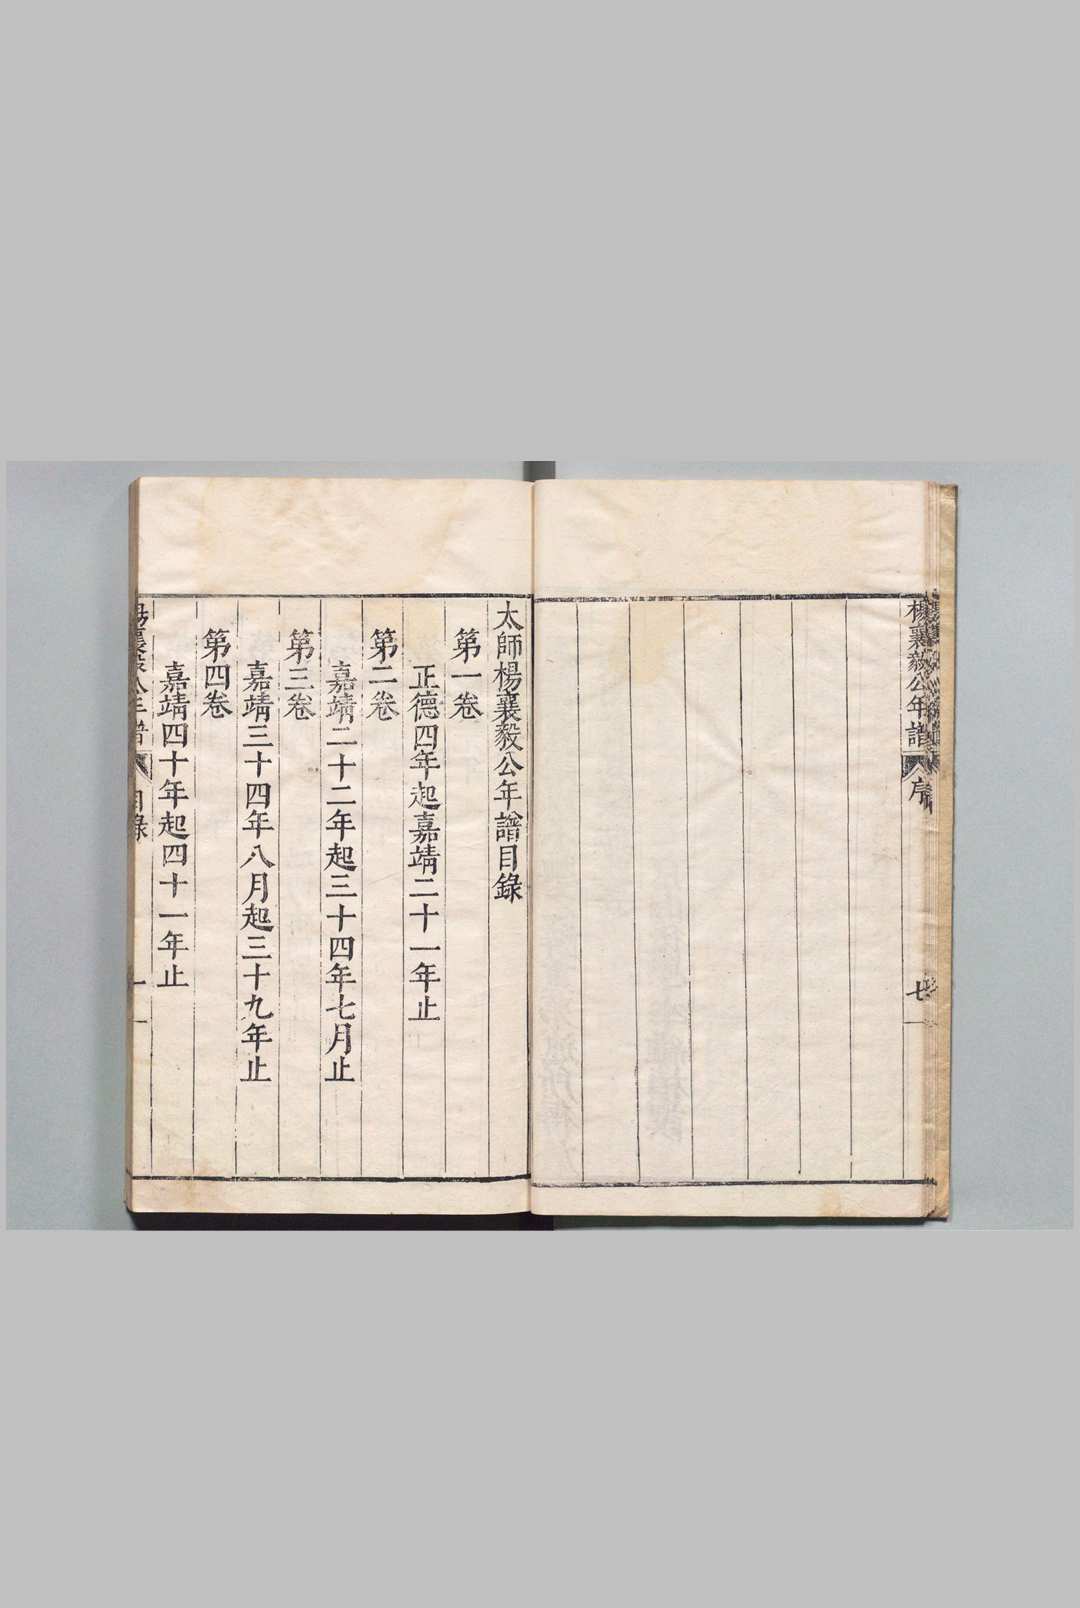 楊襄毅公年譜 序 七
太師楊襄毅公年譜目錄
第一卷
正德四年起嘉靖二十一年止
第二卷
嘉靖二十二年起三十四年七月止
第三卷
嘉靖三十四年八月起三十九年止
第四卷
嘉靖四十年起四十一年止
楊襄毅公年譜 目錄 一